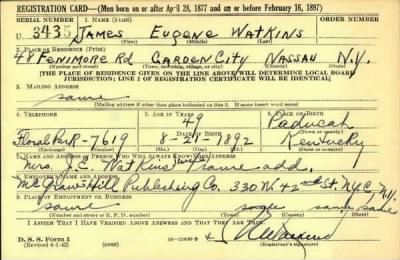 REGISTRATION CARD—(Men born on or after April 28, 1877 and on or before February 16, 1897)
SERIAL NUMBER 1. NAME (Print)
U 3435 James Eugene Watkins
(First) (Middle) (Last)
2. PLACE OF RESIDENCE (Print)
48 Fenimore Rd Garden City Nassau N.Y.
(Number and street) (Town, township, village, or city) (County) (State)
[THE PLACE OF RESIDENCE GIVEN ON THE LINE ABOVE WILL DETERMINE LOCAL BOARD
JURISDICTION; LINE 2 OF REGISTRATION CERTIFICATE WILL BE IDENTICAL]
3. MAILING ADDRESS
same
(Mailing address if other than place indicated on line 2. If same insert word same)
4. TELEPHONE 5. AGE IN YEARS 6. PLACE OF BIRTH
49 Paducah
DATE OF BIRTH (Town or county)
Floral Park - 7619 8-21-1892 Kentucky
(Exchange) (Number) (Mo.) (Day) (Yr.) (State or country)
7. NAME AND ADDRESS OF PERSON WHO WILL ALWAYS KNOW YOUR ADDRESS
Mrs. J. E. Watkins (wife) same add.
8. EMPLOYER'S NAME AND ADDRESS
McGraw-Hill Publishing Co. 330 W 42nd St. N.Y.C. N.Y.
9. PLACE OF EMPLOYMENT OR BUSINESS
same same same same
(Number and street or R. F. D. number) (Town) (County) (State)
I AFFIRM THAT I HAVE VERIFIED ABOVE ANSWERS AND THAT THEY ARE TRUE.
D. S. S. Form 1
(Revised 4-1-42) (over) (Registrant's signature)